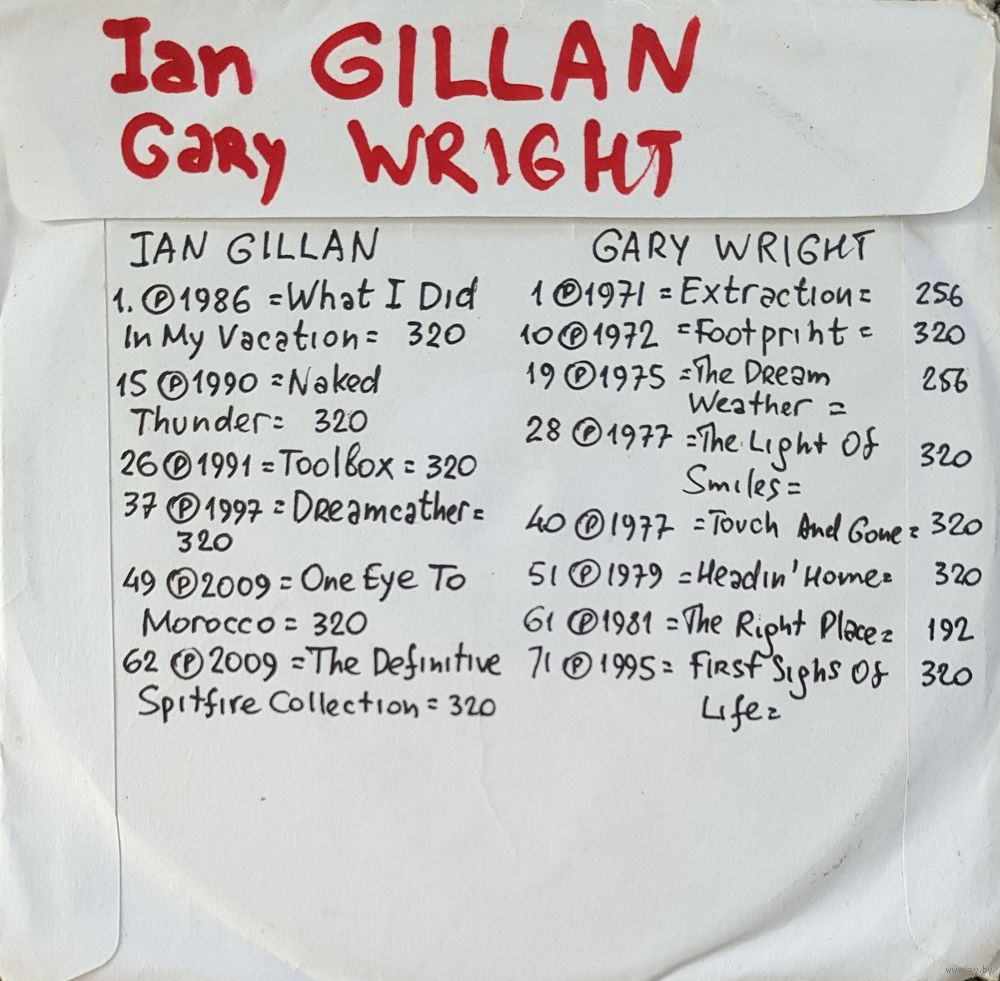 Ian GILLAN
Gary WRIGHT
IAN GILLAN
1. ℗1986 =What I Did
In My Vacation= 320
15 ℗1990 =Naked
Thunder= 320
26 ℗1991 =ToolBox = 320
37 ℗1997 =Dreamcather=
320
49 ℗2009 = One Eye To
Morocco = 320
62 ℗2009 =The Definitive
Spitfire Collection = 320
GARY WRIGHT
1 ℗1971 =Extraction= 256
10 ℗1972 =Footprint = 320
19 ℗1975 =The Dream 256
Weather =
28 ℗1977 =The Light Of
Smiles= 320
40 ℗1977 =Touch And Gone= 320
51 ℗1979 =Headin' Home= 320
61 ℗1981 =The Right Place= 192
71 ℗1995= First Sighs Of 320
Life=
www.ay.by